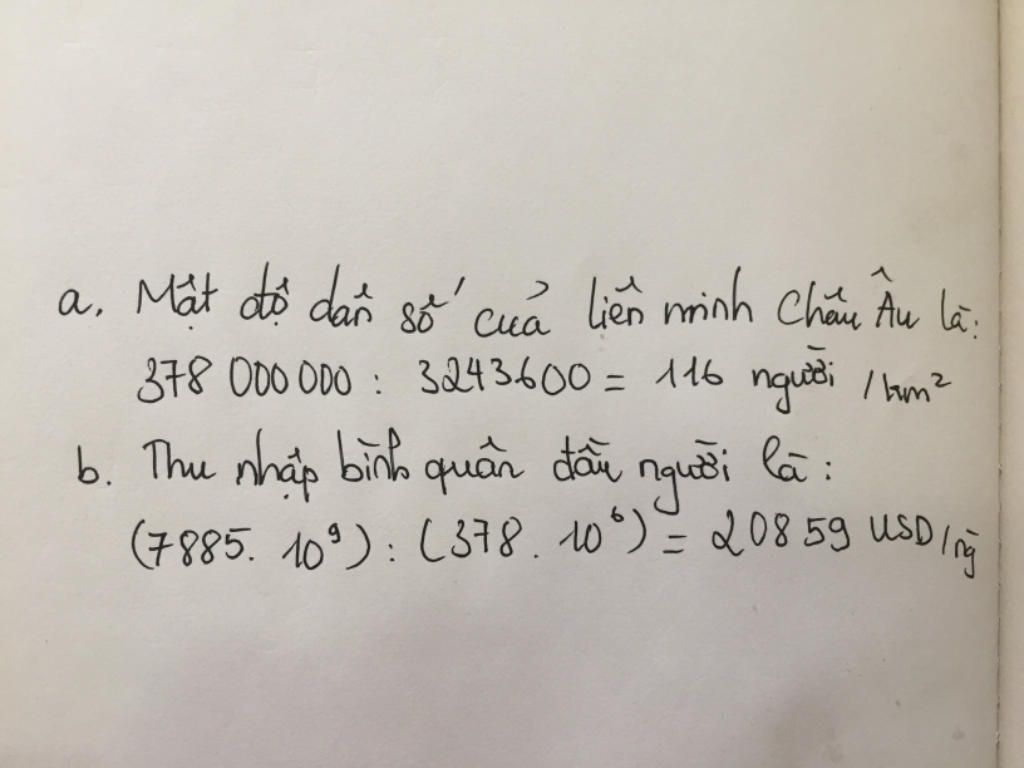 a. Mật độ dân số của liên minh Châu Âu là:
378 000 000 : 3243600 = 116 người /km²
b. Thu nhập bình quân đầu người là:
(7885. 10⁹) : (378 . 10⁶) = 20859 USD/ng